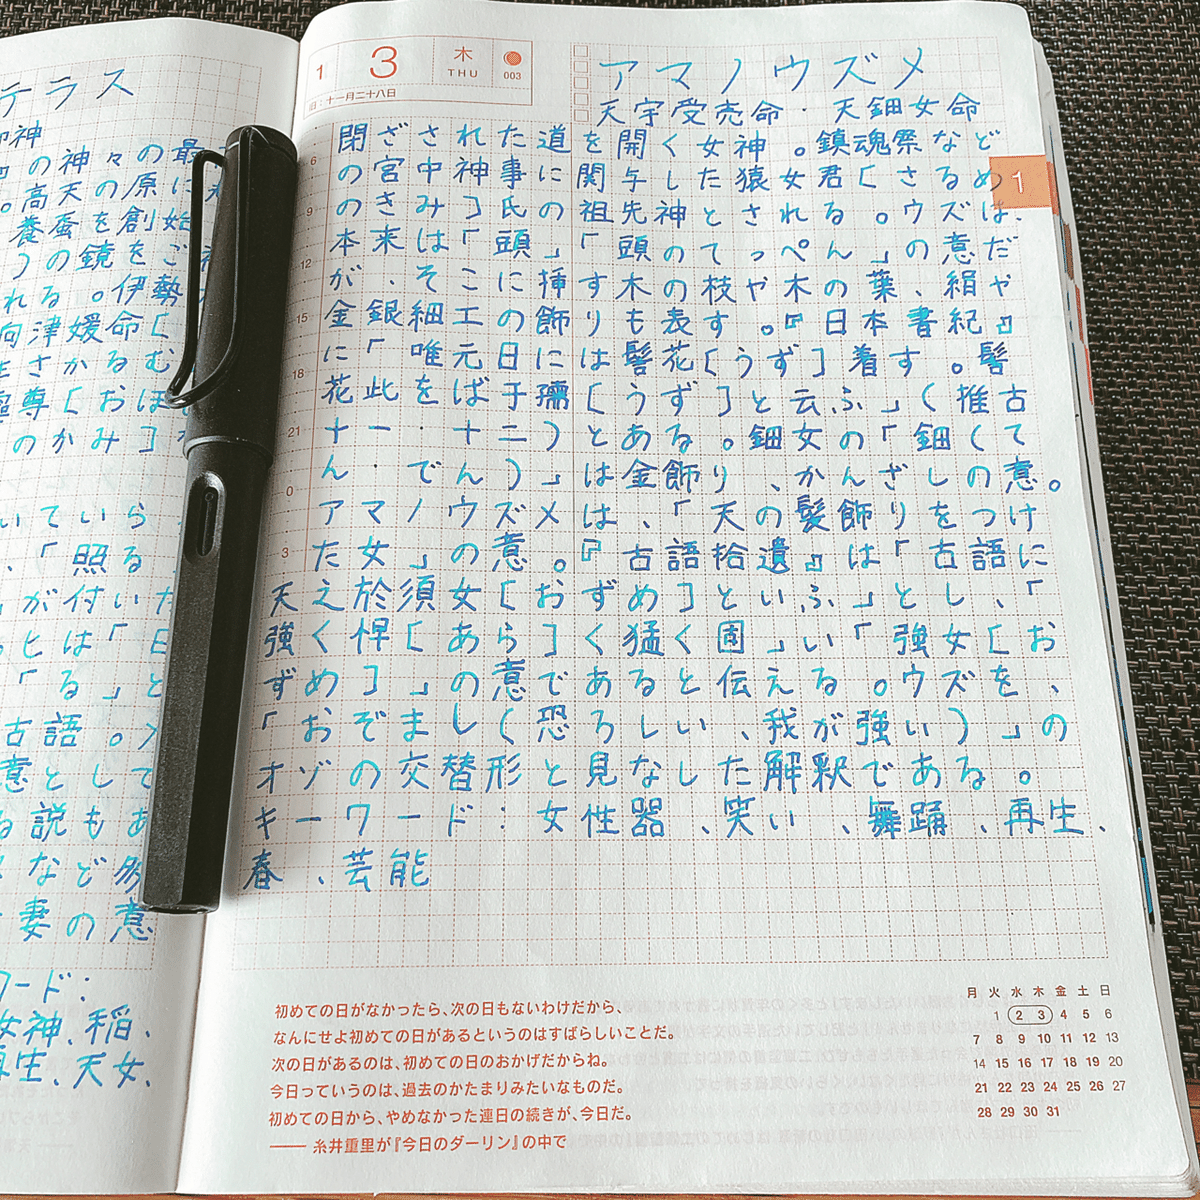 テラス
御神
の神々の最
。高天の原に
養蚕を創始
)の鏡をご
れる。伊勢
向津媛命[
さかるむ
尊[おほ
のかみ]
いていら
、「照る」
が付いた
ヒは「日
「る」と
古語。
意として
る説もあ
など多
妻の意
ワード:
女神、稲、
再生、天女、
1 3 木 THU 003
旧:十一月二十八日
アマノウズメ
天宇受売命・天鈿女命
閉ざされた道を開く女神。鎮魂祭など
の宮中神事に関与した猿女君[さるめ
のきみ]氏の祖先神とされる。ウズは、
本来は「頭」「頭のてっぺん」の意だ
が、そこに挿す木の枝や木の葉、絹や
金銀細工の飾りも表す。『日本書紀』
に「唯元日には髻花[うず]着す。髻
花此をば于孺[うず]と云ふ」(推古
十一・十二)とある。鈿女の「鈿(て
ん・でん)」は金飾り、かんざしの意。
アマノウズメは、「天の髪飾りをつけ
た女」の意。『古語拾遺』は「古語に
天之於須女[おずめ]といふ」とし、「
強く悍[あら]く猛く固」い「強女[お
ずめ]」の意であると伝える。ウズを、
「おぞまし(恐ろしい、我が強い)」の
オゾの交替形と見なした解釈である。
キーワード:女性器、笑い、舞踊、再生、
春、芸能
6
9
12
15
18
21
0
3
1
初めての日がなかったら、次の日もないわけだから、
なんにせよ初めての日があるというのはすばらしいことだ。
次の日があるのは、初めての日のおかげだからね。
今日っていうのは、過去のかたまりみたいなものだ。
初めての日から、やめなかった連日の続きが、今日だ。
—— 糸井重里が『今日のダーリン』の中で
月 火 水 木 金 土 日
1 2 3 4 5 6
7 8 9 10 11 12 13
14 15 16 17 18 19 20
21 22 23 24 25 26 27
28 29 30 31